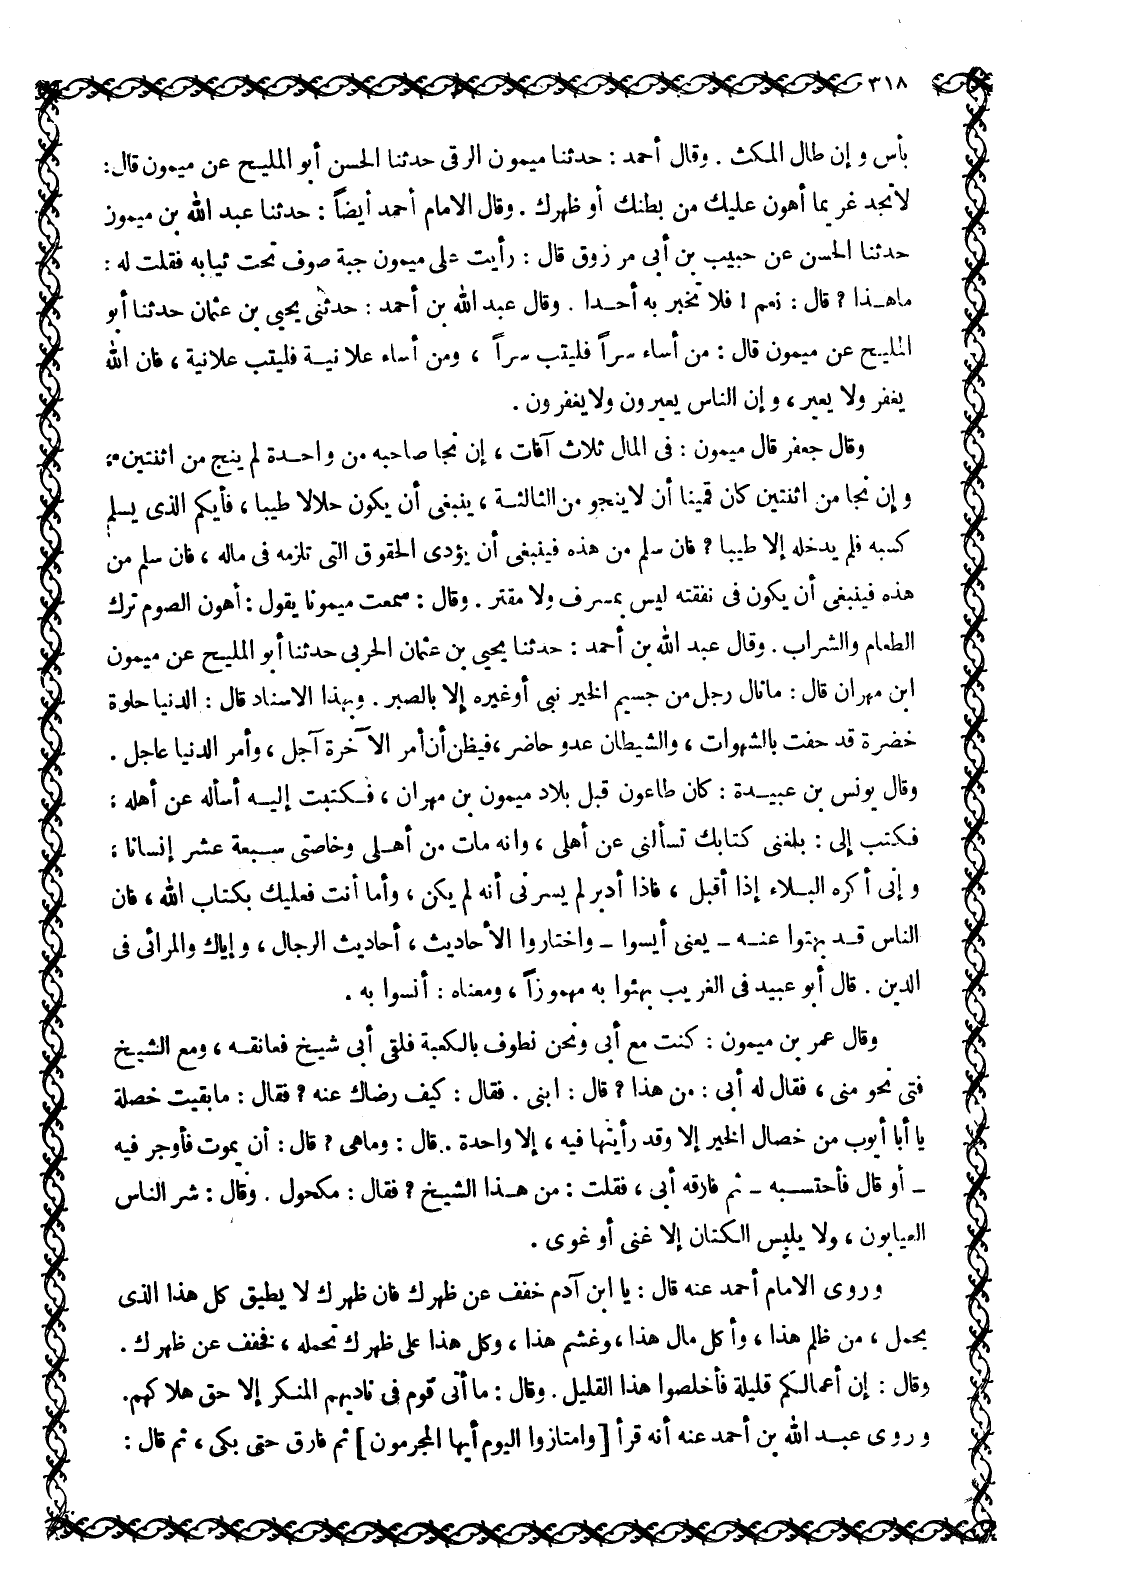 ٣١٨
بأس و إن طال المكث . وقال أحمد : حدثنا ميمون الرقى حدثنا الحسن أبو المليح عن ميمون قال :
لاتجد غريما أهون عليك من بطنك أو ظهرك . وقال الامام أحمد أيضاً : حدثنا عبد الله بن ميمون
حدثنا الحسن عن حبيب بن أبى مرزوق قال : رأيت على ميمون جبة صوف تحت ثيابه فقلت له :
ماهذا ؟ قال : نعم ! فلا تخبر به أحدا . وقال عبد الله بن أحمد : حدثنى يحيى بن عثمان حدثنا أبو
المليح عن ميمون قال : من أساء سراً فليتب سراً ، ومن أساء علانية فليتب علانية ، فان الله
يغفر ولا يعير ، و إن الناس يعيرون ولايغفرون .
وقال جعفر قال ميمون : فى المال ثلاث آفات ، إن نجا صاحبه من واحدة لم ينج من اثنتين ،
و إن نجا من اثنتين كان قمينا أن لاينجو من الثالثة ، ينبغى أن يكون حلالا طيبا ، فأيكم الذى يسلم
كسبه فلم يدخله إلا طيبا ؟ فان سلم من هذه فينبغى أن يؤدى الحقوق التى تلزمه فى ماله ، فان سلم من
هذه فينبغى أن يكون فى نفقته ليس بمسرف ولا مقتر . وقال : سمعت ميمونا يقول : أهون الصوم ترك
الطعام والشراب . وقال عبد الله بن أحمد : حدثنا يحيى بن عثمان الحربى حدثنا أبو المليح عن ميمون
ابن مهران قال : مانال رجل من جسيم الخير نبى أوغيره إلا بالصبر . وبهذا الاسناد قال : الدنيا حلوة
خضرة قد حفت بالشهوات ، والشيطان عدو حاضر ، فيظن أن أمر الآخرة آجل ، وأمر الدنيا عاجل .
وقال يونس بن عبيدة : كان طاعون قبل بلاد ميمون بن مهران ، فكتبت إليه أسأله عن أهله :
فكتب إلى : بلغنى كتابك تسألنى عن أهلى ، وانه مات من أهلى وخاصتى سبعة عشر إنسانا :
و إنى أكره البلاء إذا أقبل ، فاذا أدبر لم يسرنى أنه لم يكن ، وأما أنت فعليك بكتاب الله ، فان
الناس قد بهتوا عنه ـ يعنى أيسوا ـ واختاروا الأحاديث ، أحاديث الرجال ، و إياك والمرائى فى
الدين . قال أبو عبيد فى الغريب بهئوا به مهموزاً ، ومعناه : أنسوا به .
وقال عمر بن ميمون : كنت مع أبى ونحن نطوف بالكعبة فلقى أبى شيخ فعانقه ، ومع الشيخ
فتى نحو منى ، فقال له أبى : من هذا ؟ قال : ابنى . فقال : كيف رضاك عنه ؟ فقال : مابقيت خصلة
يا أبا أيوب من خصال الخير إلا وقد رأيتها فيه ، إلا واحدة . قال : وماهى ؟ قال : أن يموت فأوجر فيه
ـ أو قال فأحتسبه ـ ثم فارقه أبى ، فقلت : من هذا الشيخ ؟ فقال : مكحول . وقال : شر الناس
العيابون ، ولا يلبس الكتان إلا غنى أو غوى .
و روى الامام أحمد عنه قال : يا ابن آدم خفف عن ظهرك فان ظهرك لا يطيق كل هذا الذى
يحمل ، من ظلم هذا ، وأكل مال هذا ، وغشم هذا ، وكل هذا على ظهرك تحمله ، فخفف عن ظهرك .
وقال : إن أعمالكم قليلة فأخلصوا هذا القليل . وقال : ما أتى قوم فى ناديهم المنكر إلا حق هلاكهم .
و روى عبد الله بن أحمد عنه أنه قرأ [وامتازوا اليوم أيها المجرمون] ثم فارق حتى بكى ، ثم قال :